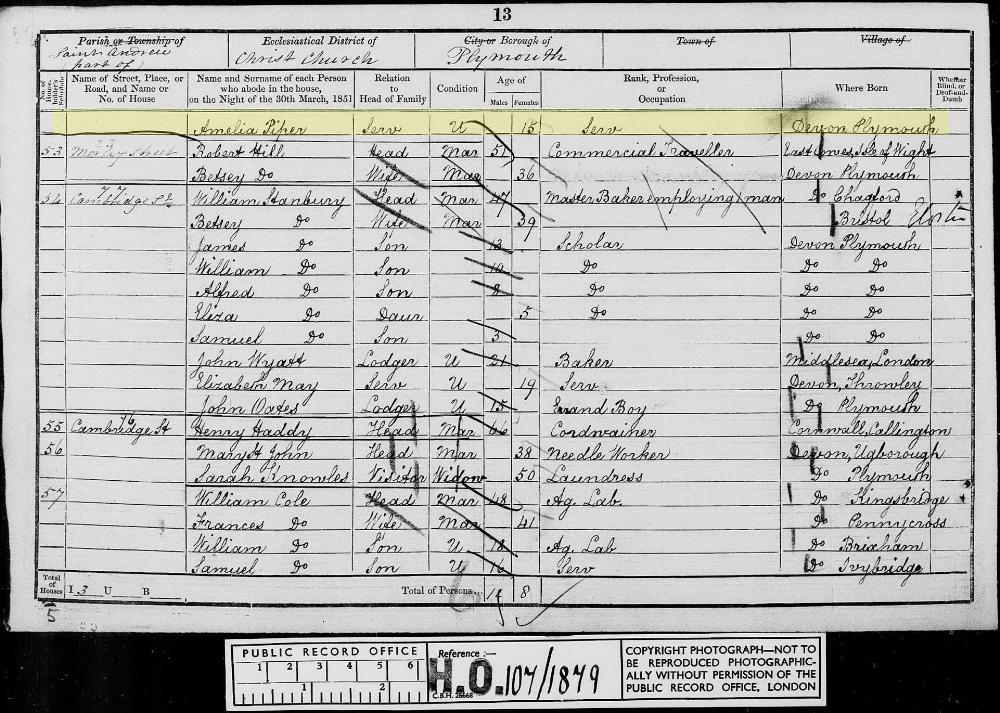 13
Parish or Township of
Ecclesiastical District of
City or Borough of
Town of
Village of
Saint Andrew
part of
Christ Church
Plymouth
No. of House-holder's Schedule
Name of Street, Place, or Road, and Name or No. of House
Name and Surname of each Person who abode in the house, on the Night of the 30th March, 1851
Relation to Head of Family
Condition
Age of
Males Females
Rank, Profession, or Occupation
Where Born
Whether Blind, or Deaf-and-Dumb
Amelia Piper Serv U 15 Serv Devon Plymouth
53 Morley Street Robert Hill Head Mar 51 Commercial Traveller East Cowes, Isle of Wight
Betsey Do Wife Mar 36 Devon Plymouth
54 Cambidge St William Stanbury Head Mar 47 Master Baker employing 1 man Do Chagford
Betsey Do Wife Mar 39 Bristol
James Do Son 13 Scholar Devon Plymouth
William Do Son 10 Do Do Do
Alfred Do Son 8 Do Do Do
Eliza Do Daur 5 Do Do Do
Samuel Do Son 3 Do Do
John Wyatt Lodger U 21 Baker Middlesex, London
Elizabeth May Serv U 19 Serv Devon, Throwley
John Oates Lodger U 15 Errand Boy Do Plymouth
55 Cambridge St Henry Haddy Head Mar 66 Cordwainer Cornwall, Callington
56 Mary St John Head Mar 38 Needle Worker Devon, Ugborough
Sarah Knowles Visitor Widow 50 Laundress Do Plymouth
57 William Cole Head Mar 48 Ag. Lab. Do Kingsbridge
Frances Do Wife Mar 41 Do Pennycross
William Do Son U 18 Ag. Lab Do Brixham
Samuel Do Son U 16 Serv Do Ivybridge
Total of Houses I 3 U B Total of Persons... 8
5
PUBLIC RECORD OFFICE
1 2 3 4 5 6
1 2
Reference :-
H.O. 107/1879
C.B.H. 26668
COPYRIGHT PHOTOGRAPH—NOT TO
BE REPRODUCED PHOTOGRAPHIC-
ALLY WITHOUT PERMISSION OF THE
PUBLIC RECORD OFFICE, LONDON